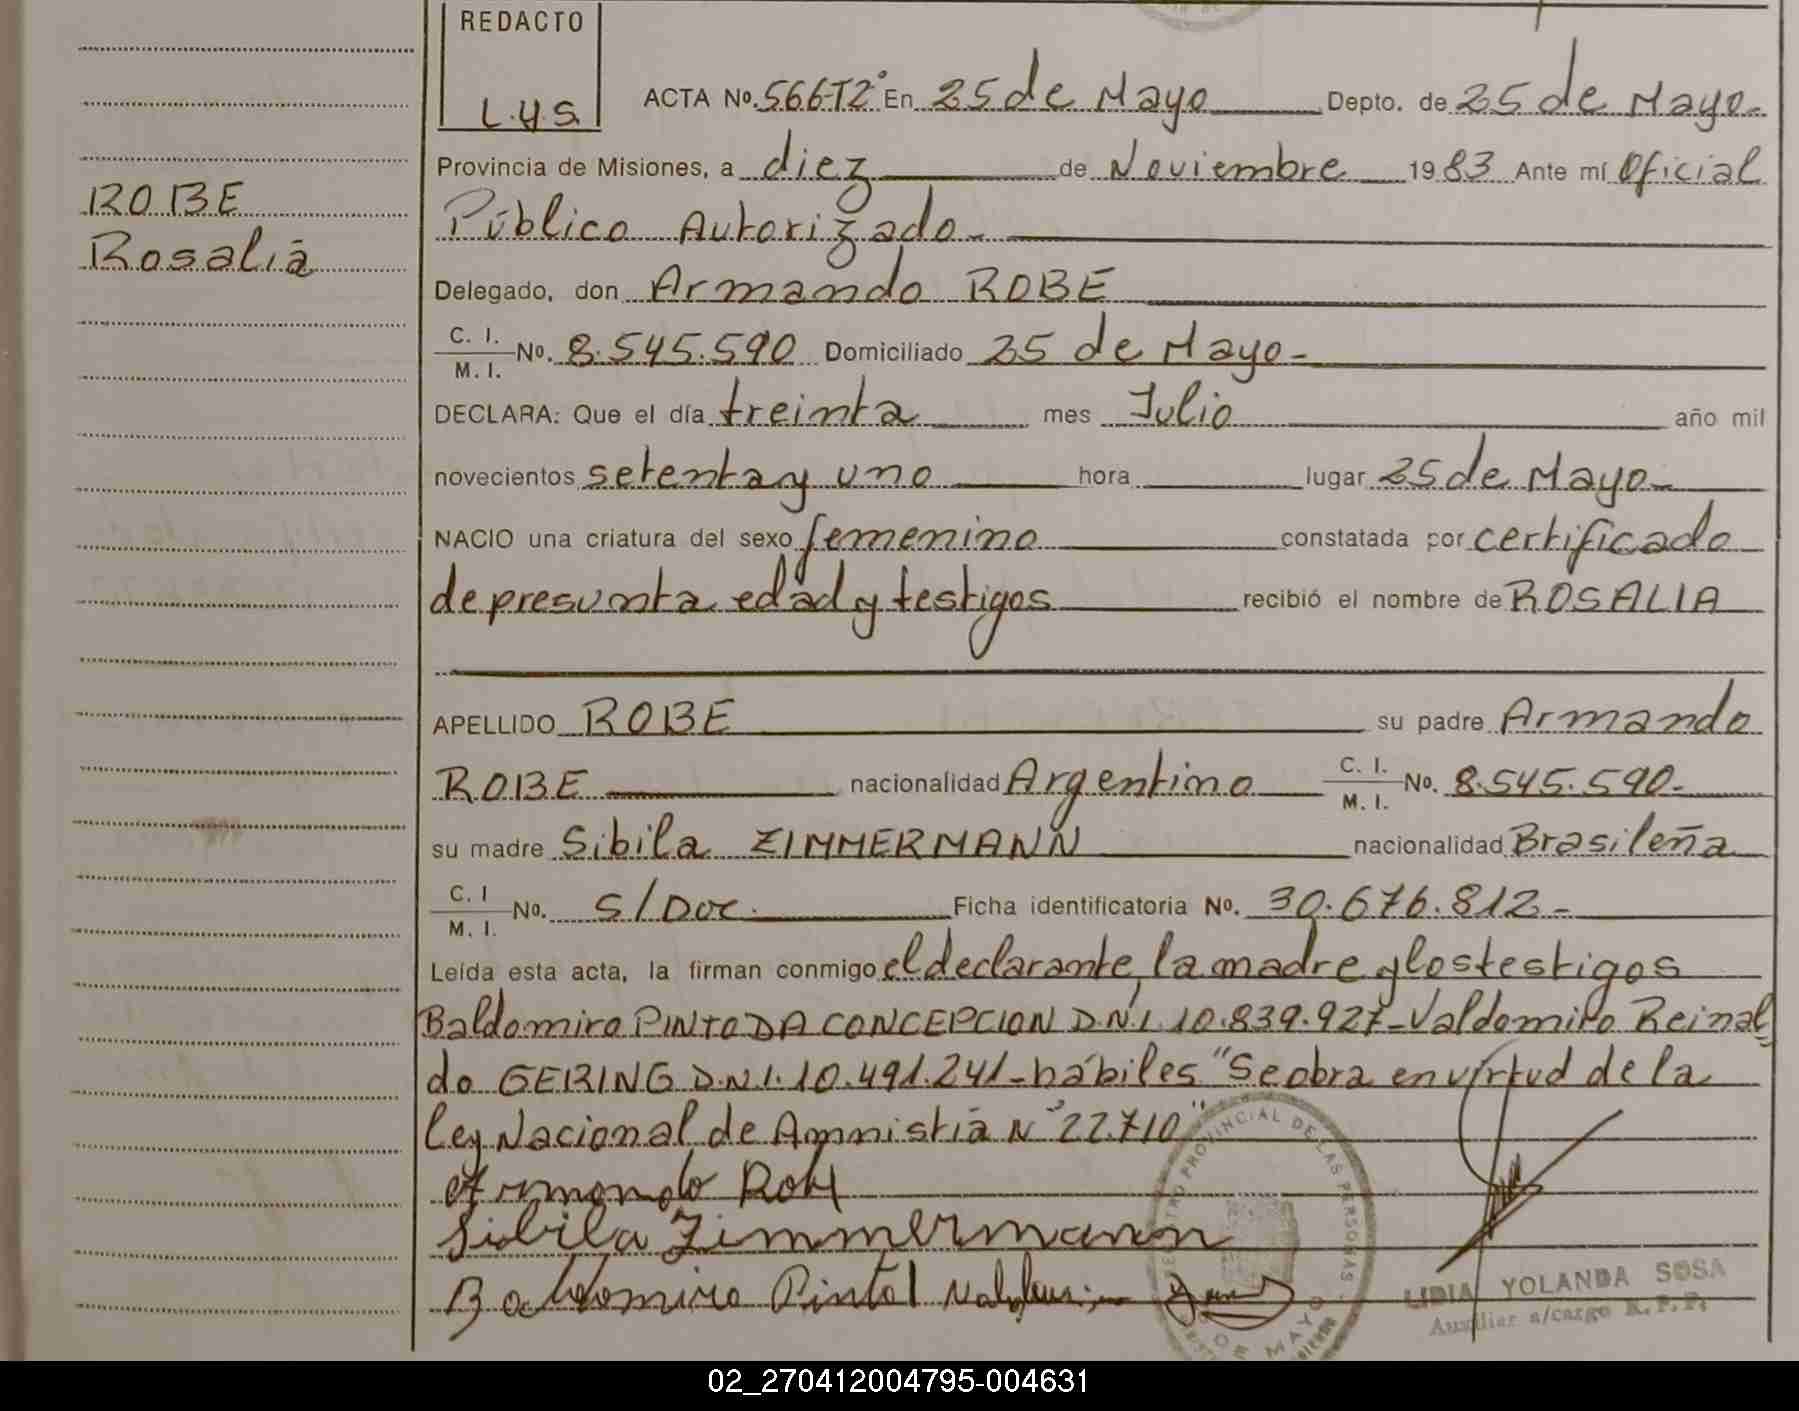 REDACTO
L.Y.S.
ACTA Nº. 566T2° En 25 de Mayo Depto. de 25 de Mayo-
Provincia de Misiones, a diez de Noviembre 1983 Ante mí Oficial
Público Autorizado-
ROBE
Rosalia
Delegado, don Armando ROBE
C. I.
M. I. Nº. 8.545.590 Domiciliado 25 de Mayo-
DECLARA: Que el día treinta mes Julio año mil
novecientos setenta y uno hora lugar 25 de Mayo-
NACIO una criatura del sexo femenino constatada por certificado
de presunta edad y testigos recibió el nombre de ROSALIA
APELLIDO ROBE su padre Armando
ROBE nacionalidad Argentino C. I. M. I. Nº. 8.545.590-
su madre Sibila ZIMMERMANN nacionalidad Brasileña
C. I M. I. Nº. S/Doc. Ficha identificatoria Nº. 30.676.812-
Leída esta acta, la firman conmigo el declarante, la madre y los testigos
Baldomiro PINTO DA CONCEPCION D.N.I. 10.839.927-Valdomiro Reinal
do GERING D.N.I. 10.491.241-hábiles "Se obra en virtud de la
Ley Nacional de Amnistia N° 22.710"
Armando Robe
Sibila Zimmermann
Baldomiro Pinto
REGISTRO PROVINCIAL DE LAS PERSONAS
DE MAYO
LIDIA YOLANDA SOSA
Auxiliar a/cargo R.P.P.
02_270412004795-004631